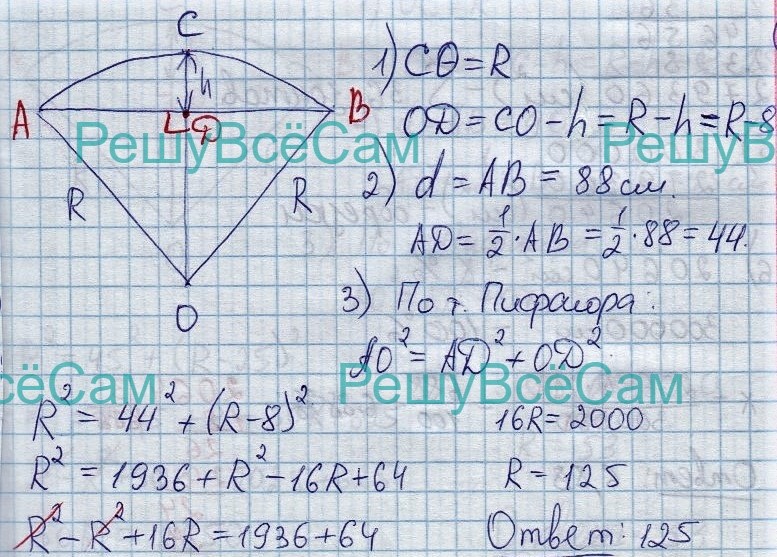 C
h
A
B
D
R
R
O
1) CO = R
OD = CO - h = R - h = R - 8
РешуВсёСам
РешуВсёСам
2) d = AB = 88 см.
AD = 1/2 · AB = 1/2 · 88 = 44.
3) По т. Пифагора:
AO² = AD² + OD²
РешуВсёСам
ёСам
R² = 44² + (R-8)²
R² = 1936 + R² - 16R + 64
R² - R² + 16R = 1936 + 64
16R = 2000
R = 125
Ответ: 125